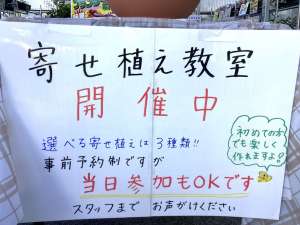 寄せ植え教室
開催中
選べる寄せ植えは3種類!!
事前予約制ですが
当日参加もOKです
スタッフまで お声がけください
初めての方
でも楽しく
作れますよ♪